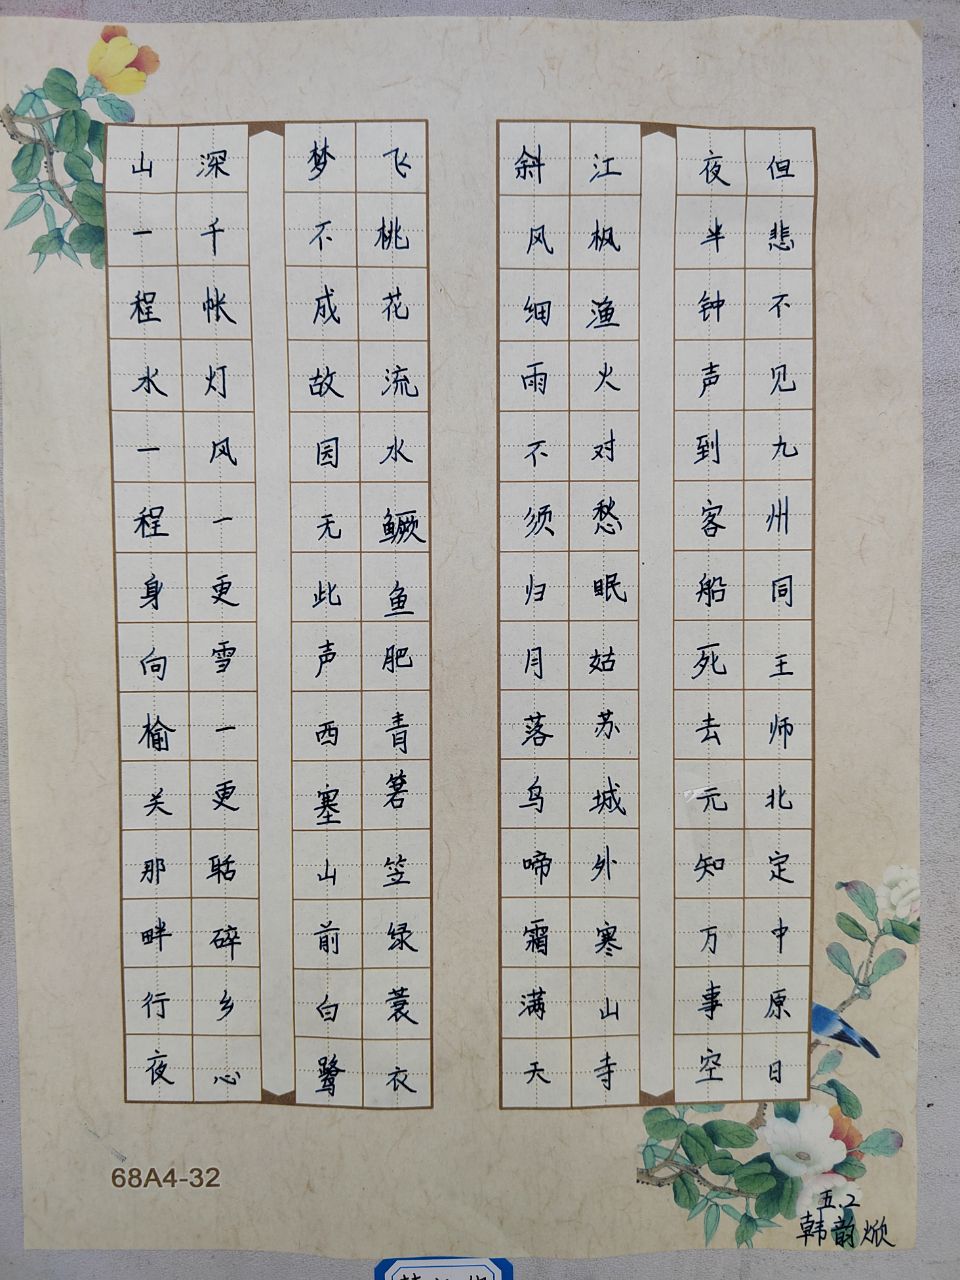 山一程水一程身向榆关那畔行夜
深千帐灯风一更雪一更聒碎乡心
梦不成故园无此声西塞山前白鹭
飞桃花流水鳜鱼肥青箬笠绿蓑衣
斜风细雨不须归月落鸟啼霜满天
江枫渔火对愁眠姑苏城外寒山寺
夜半钟声到客船死去元知万事空
但悲不见九州同王师北定中原日
68A4-32
五.2
韩韵